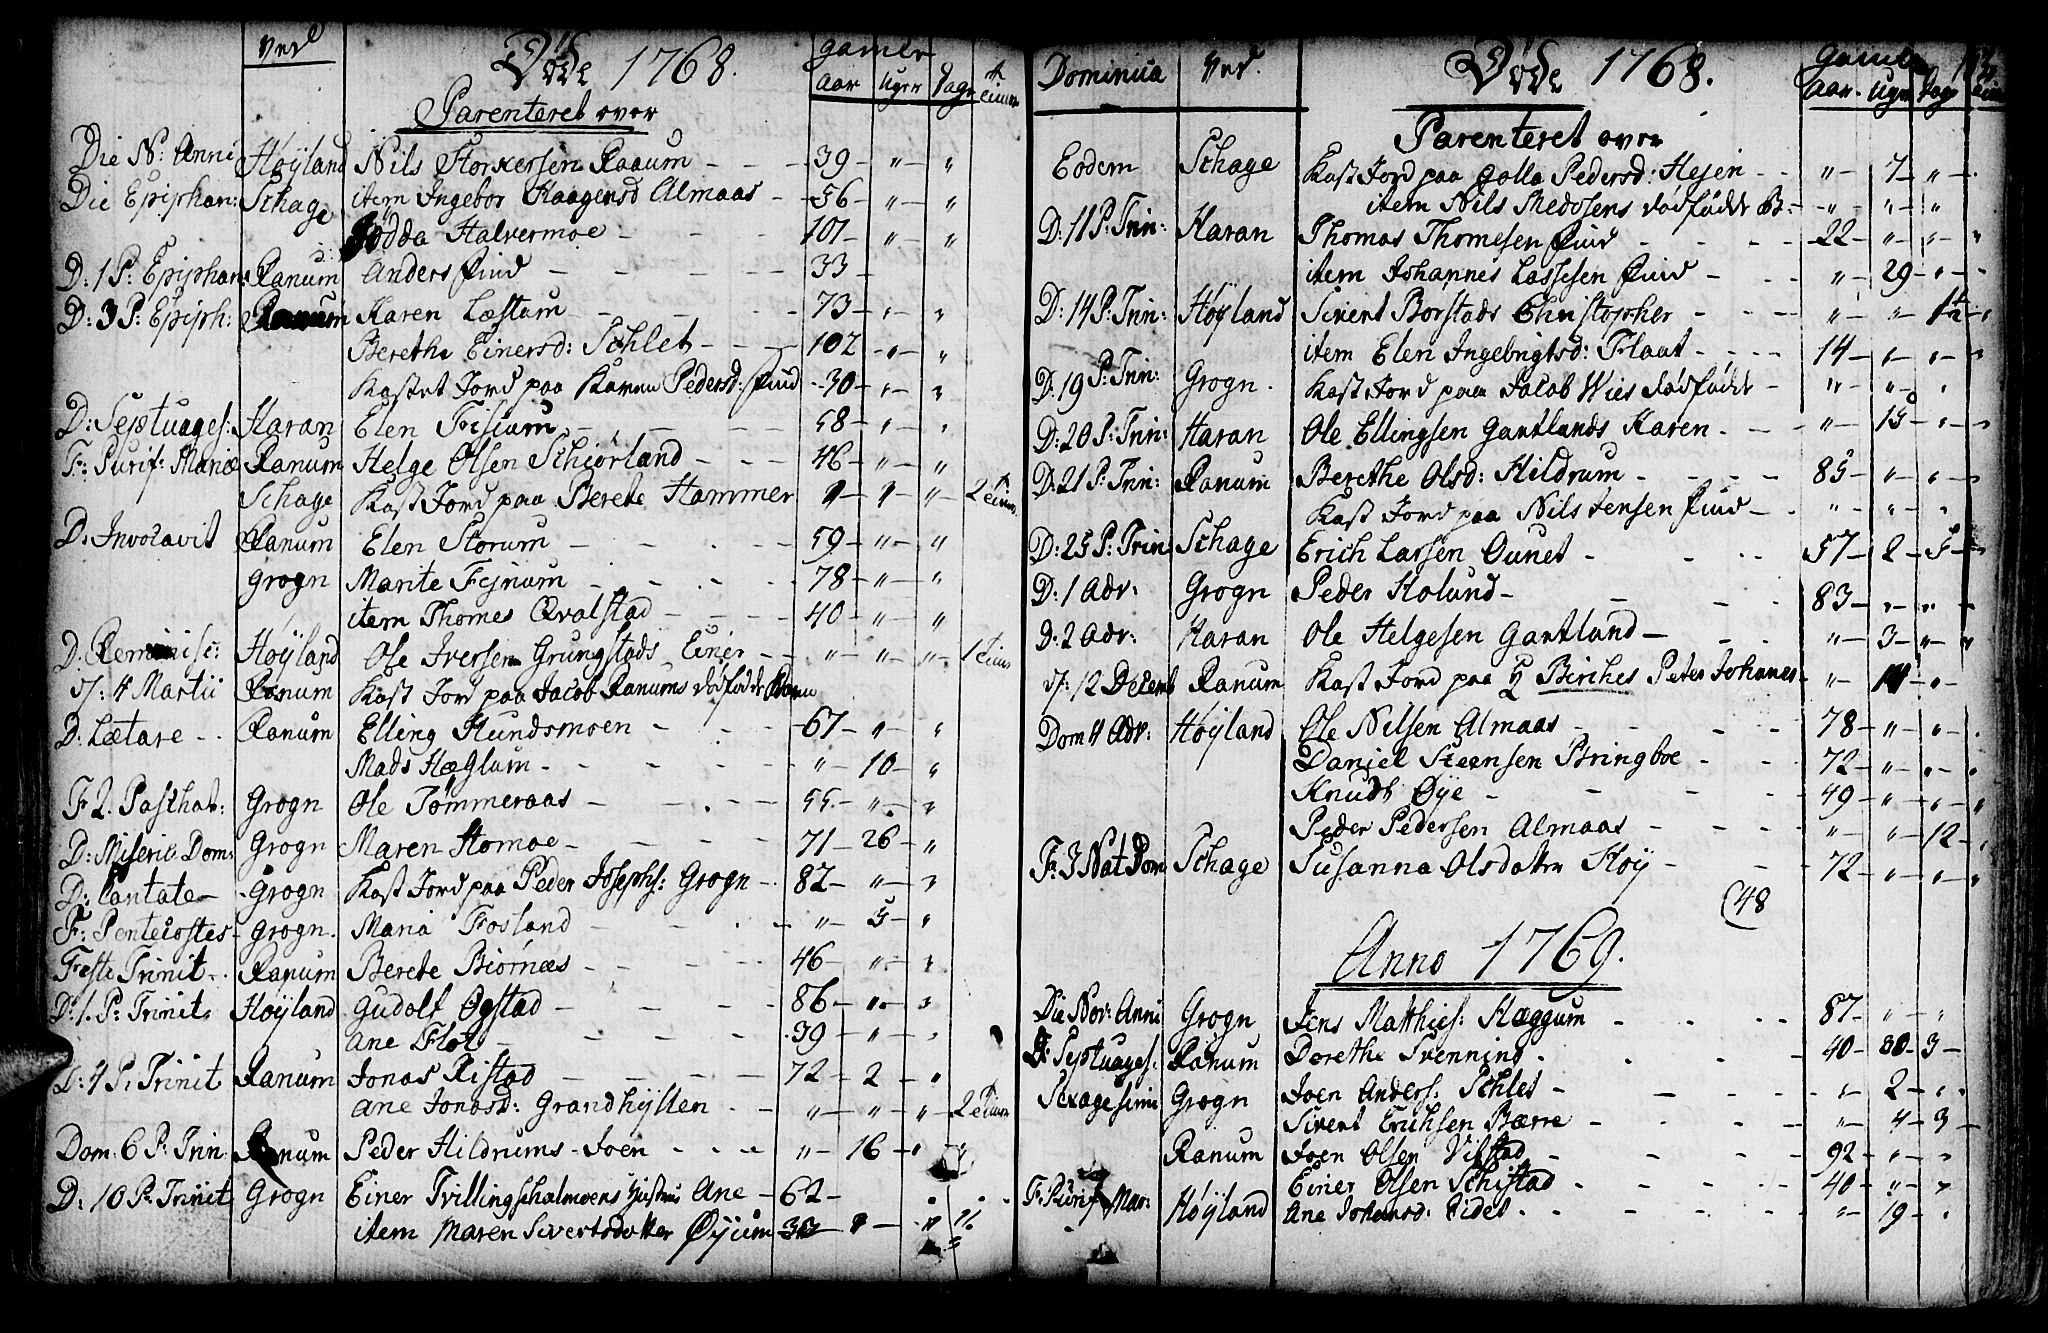 Ved Døde 1768. gamle
Aar Uger Dage
Parenteret over
Die N: Anni Høyland Nils Storkersen Raaum - - - 39 - " - "
Die Epiphan: Schage item Ingebor Haagensd Almaas - 56 - " - "
Jødda Halvermoe - - - 101 - " - "
D: 1 P: Epiphan: Ranum Anders Find - - - 33 -
D: 3 P: Epiph: Ranum Karen Læstum - - - 73 - " - "
Berethe Einersd: Schlet - - - 102 - " - "
Kastet Jord paa Karen Pedersd: Find - 30 - " - "
D: Septuages: Haran Elen Frisium - - - 58 - " - "
F: Purif: Mariæ Ranum Helge Olsen Schiørland - - - 46 - " - "
Schage Kast Jord paa Berete Hammer " - " - " - 2 Timer
D. Invocavit Ranum Elen Storum - - - 59 - " - "
Grogn Marite Fejnum - - - 78 - " - "
item Thomes Qvalstad - - - 40 - " - "
D. Reminisc: Høyland Ole Iversen Grungstads Einer - - " - " - " - 1 Time
d: 4 Martii Ranum Kast Jord paa Jacob Ranums dødfødde Barn
D: Lætare - - Ranum Elling Hundsmoen - - - 67 - " - "
Mads Hæglum - - - " - 10 - "
F 2. Paschat: Grogn Ole Tømmeraas - - - 55 - " - "
D: Miseric Dom: Grogn Maren Homoe - - - 71 - 26 - "
D: Cantate - Grogn Kast Jord paa Peder Josephs: Grogn - 82 - " - "
F: Pentecostes - Grogn. Maria Fosland - - - " - 5 - "
Festo Trinit - - Ranum Berete Biørnæs - - - 46 - " - "
D: 1. P: Trinit: Høyland Gudolf Øgstad - - - 86 - " - "
Ane Flot - - - 39 - " - "
D: 4 P: Trinit Ranum Jonas Ristad - - - 72 - 2 - "
Ane Jonasd: Grandhyllen - - " - " - " - 2 Timer
Dom. 6 P: Trin Ranum Peder Hildrums Joen - - - " - 16 - " - "
D: 10 P: Trinit Grogn Einer Trillingsholmoens Hustru Ane - 62 -
item Maren Sivertsdatter Øyum 32 - " - "
Dominica Ved. Døde 1768. Gamle
Aar. Uger Dage
Parenteret over
Eodem Schage Kast Jord paa Golla Pedersd: Hejen - - " - 7 - " -
item Nils Medosens dødfødde B: - " - " - "
D: 11 P: Trin: Haran Thomas Thomesen Find - - - 22 - " - " - "
item Johannes Lassesen Find - - - " - 29 - " - "
D: 14 P: Trin: Høyland Sivert Borstads Christopher - - - " - " - 1½ - "
item Elen Ingebrigtsd: Flaat - - - 14 - " - " - "
D. 19 P: Trin: Grogn. Kast Jord paa Jacob Wies dødfødde - " - " - "
D: 20 P: Trin: Haran Ole Ellingsen Gartlands Karen - - - " - 15 - " - "
D: 21 P: Trin: Ranum Berethe Olsd: Hildrum - - - 85 - " - " - "
Kast Jord paa Nils Jensen Find - - " - " - "
D: 25 P: Trin Schage Erich Larsen Ounet - - - 57 - 2 - 5 -
D: 1 Adv: Grogn Peder Holund - - - 83 - " - " - "
D: 2 Adv: Haran Ole Helgesen Gartland - - - " - 3 - " - "
d: 12 Decemb Ranum Kast Jord paa H Birches Peter Johanes - " - 11 - " -
Dom 4 Adv: Høyland Ole Nilsen Almaas - - - 78 - " - " -
Daniel Steensen Bringboe - - 72 - " - " - "
Knudt Øye - - - 49 - " - " - "
Peder Pedersen Almaas - - - " - " - 12 -
F: 3 Nat Dom Schage Susanna Olsdatter Høy - - - 72 - " - " - "
(48
Anno 1769.
Die Nov: Anni Grogn Jens Matthies: Hæggum - - - 87 - " - "
D: Septuages. Ranum Dorethe Svenning - - - 40 - 30 - 3 -
Sexagesimi Grogn Joen Anders: Schlet - - - " - 2 - "
Sivert Erichsen Bærre - - - " - 4 - 3 -
Ranum Joen Olsen Vibstad - - - 92 - " - "
Einer Olsen Schistad - - - 40 - " - "
F: Purif Mar: Høyland Ane Johansd: Eidet - - - " - 19 - "